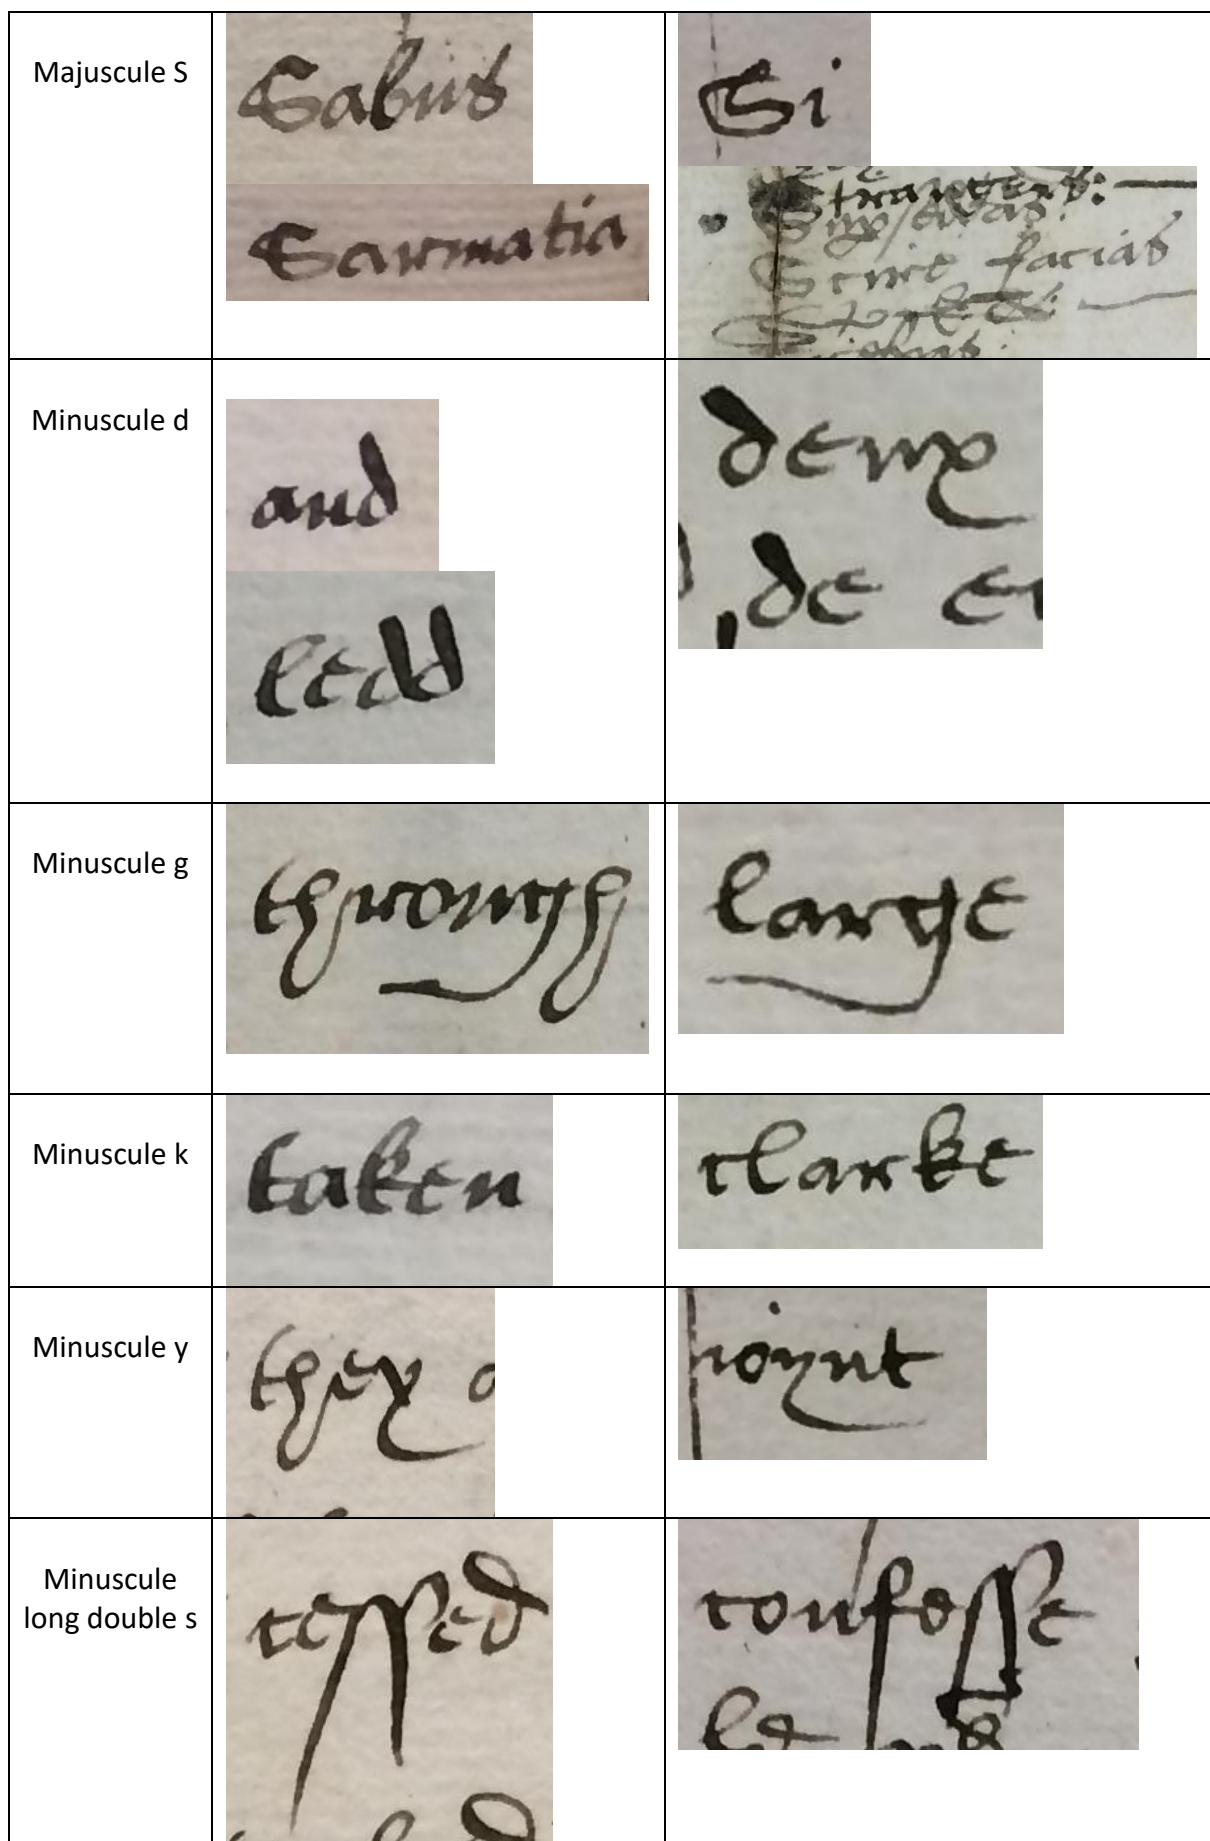 Majuscule S
Sabus
Sarmatia
Si
Strangers:
Scire facias
Minuscule d
and
ledd
deux
de
Minuscule g
through
large
Minuscule k
taken
clarke
Minuscule y
they
ioynt
Minuscule
long double s
cessed
confesse